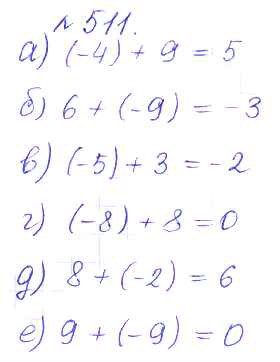 № 511.
а) (-4) + 9 = 5
б) 6 + (-9) = -3
в) (-5) + 3 = -2
г) (-8) + 8 = 0
д) 8 + (-2) = 6
е) 9 + (-9) = 0